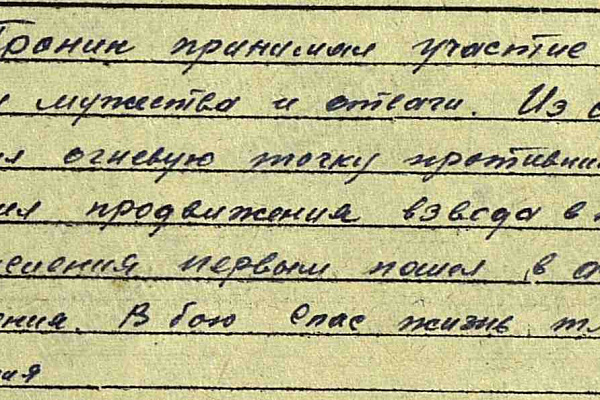 Гронин принимал участие
и мужества и отваги. Из с
ия огневую точку противни
ия продвижения взвода в н
селения первым пошел в а
ения. В бою спас жизнь тя
ия